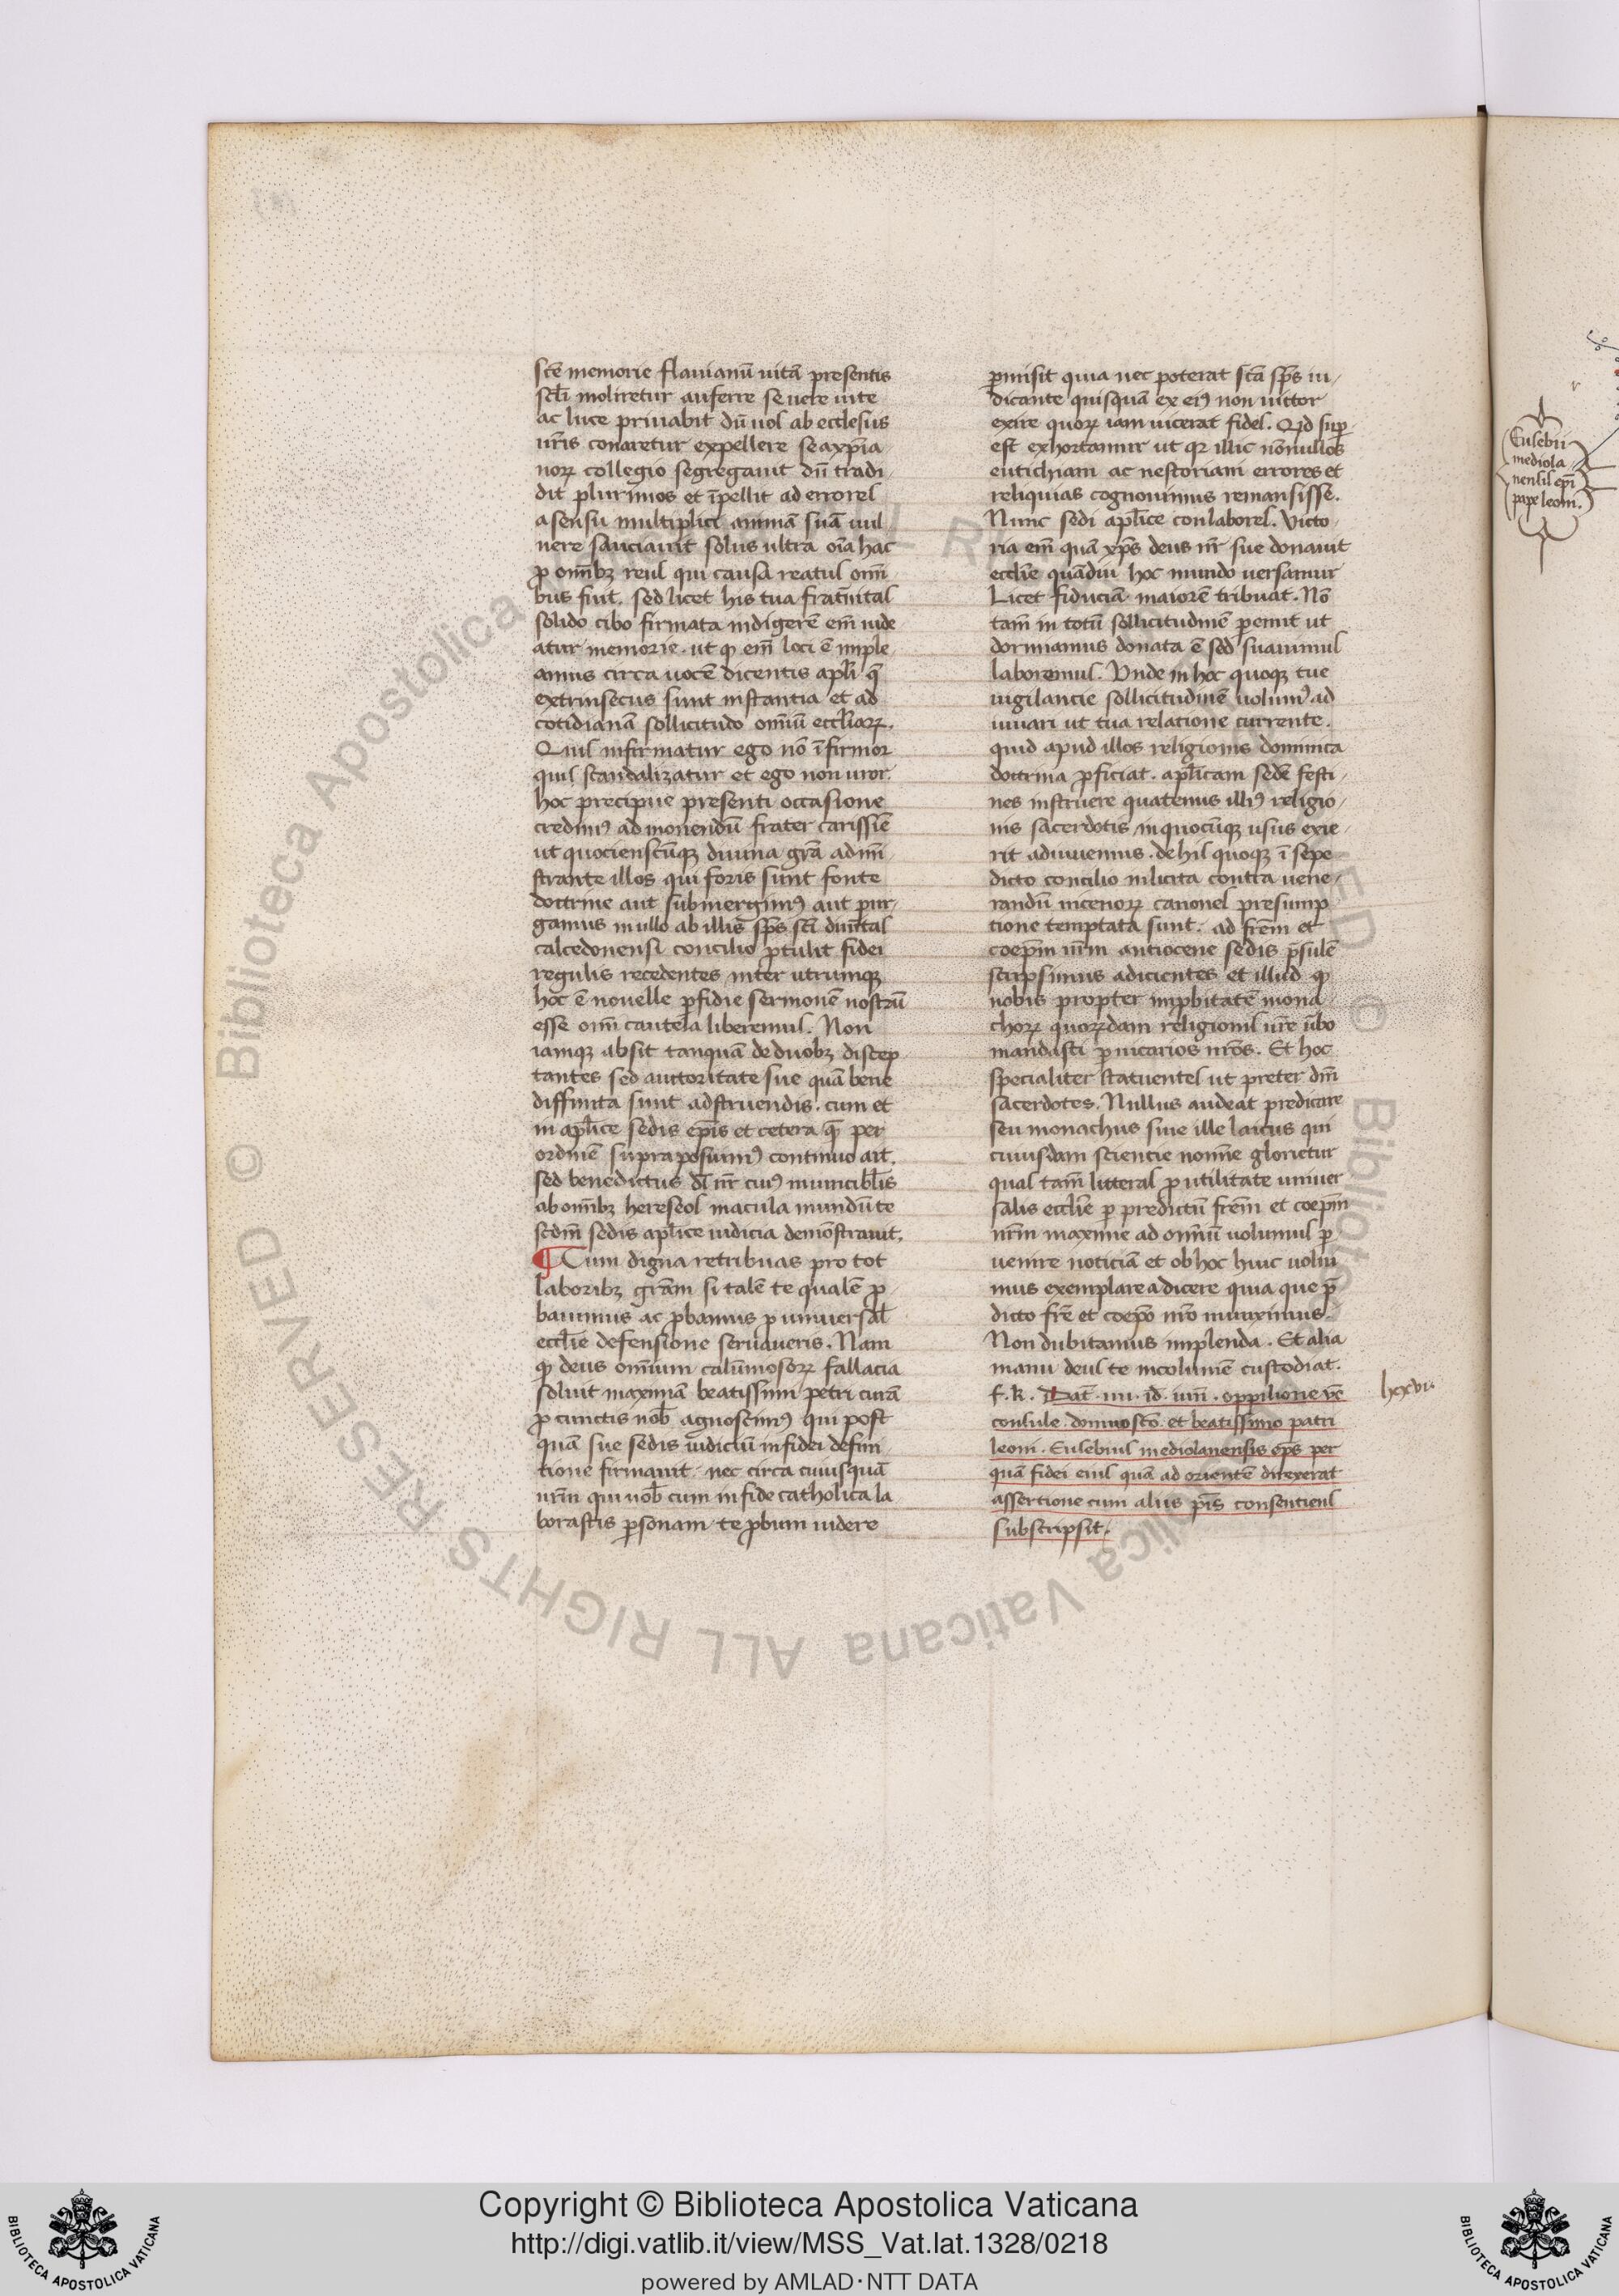 scē memorie flauianū uitā presentis
scl̄i moliretur auferre se uere uite
ac luce priuabit dū uol ab ecclesiis
ur̄is conaretur expellere se axp̄ia
noꝝ collegio segregauit dū tradi
dit plurimos et īpellit ad errorel
a sensu multiplici animā suā uul
nere sauciauit solus ultra oīa hac
ꝓ om̄ibꝫ reul qui causa reatul om̄i
bus fuit. sed licet his tua frat̄nital
solido cibo firmata indigerē em̄ uide
atur memorie. ut ꝙ em̄ loci ē imple
amus circa uocē dicentis apl̄i q̄
extrinsecus sunt instantia et ad
cotidianā sollicitudo om̄iū eccl̄iaꝝ.
Quil infirmatur ego nō īfirmor
quil scandalizatur et ego non uror.
hoc precipue presenti occasione
credimꝰ ad monendū frater carissīe
ut quociensc̄unqꝫ diuina gr̄a admī
strante illos qui foris sunt fonte
doctrine aut submergimꝰ aut pur
gamus in ullo ab illis sp̄s sc̄i diuītal
calcedonensi concilio ꝓtulit fidei
regulis recedentes inter utrumqꝫ
hoc ē nouelle ꝑfidie sermonē nostrū
esse om̄i cautela liberemul. Non
iamqꝫ absit tanquā de duobꝫ discep
tantes sed auctoritate sue quā bene
diffinita sunt adstruendis. cum et
in apl̄ice sedis ep̄is et cetera q̄ per
ordinē supra posuimꝰ continuo ait.
sed benedictus dī nr̄ cuiꝰ inuincibl̄is
ab om̄ibꝫ hereseol macula mundū te
scdm̄ sedis apl̄ice iudicia demōstrauit.
¶ Cum digna retribuas pro tot
laboribꝫ gr̄am si talē te qualē ꝓ
bauimus ac ꝓbamus ꝓ uniuersal̄
eccl̄ie defensione seruaueris. Nam
ꝙ deus om̄ium calūniosoꝝ fallacia
soluit maximā beatissimi petri curā
ꝓ cunctis nob̄ agnoscimꝰ qui post
quā sue sedis iudiciū in fidei defini
tione firmauit. nec circa cuiusquā
ur̄m qui nob̄ cum in fide catholica la
borastis ꝑsonam te ꝓbum uidere
ꝑmisit quia nec poterat sc̄a sp̄s iu
dicante quisquā ex eiꝰ non uictor
exire quoꝝ iam uicerat fidel. Qd̄ suꝑ
est exhortamur ut qꝛ illic nōnullos
eutichiani ac nestoriani errores et
reliquias cognouimus remansisse.
Nunc sedi apl̄ice conlaborel. Victo
ria em̄ quā xp̄s deus nr̄ sue donauit
eccl̄ie quādiu hoc mundo uersamur
Licet fiduciā maiorē tribuat. Nō
tam̄ in totū sollicitudinē ꝑemit ut
dormiamus donata ē sed suauimul
laboremul. Vnde in hoc quoqꝫ tue
uigilancie sollicitudinē uolumꝰ ad
iuuari ut tua relatione currente.
quid apud illos religionis dominica
doctrina ꝓficiat. apl̄icam sedē festi
nes instruere quatenus illiꝰ religio
nis sacerdotis in quocūqꝫ usus exie
rit adiuuemus. de hil quoqꝫ ī sepe
dicto concilio inlicita contra uene
randū nicenoꝝ canonel presump
tione temptata sunt. ad frēm et
coep̄m nr̄m antiocene sedis p̄sulē
scripsimus adicientes et illud ꝙ
nobis propter improbitatē mona
choꝝ quoꝝdam religionil ur̄e ūbo
mandasti ꝑ uicarios nr̄os. Et hoc
specialiter statuentel ut preter dn̄i
sacerdotes. Nullus audeat predicare
seu monachus siue ille laicus qui
cuiusdam sciencie nomine glorietur
qual tam̄ litteral ꝓ utilitate uniuer
salis eccl̄ie ꝑ predictū frēm et coep̄m
nr̄m maxime ad om̄iū uolumul ꝑ
uenire noticiā et ob hoc huic uolui
mus exemplare adicere quia que p̄
dicto fr̄e et coep̄o nr̄o iniunximus.
Non dubitamus implenda. Et alia
manu deul te incolumē custodiat.
f. k. Dat̄ .iiii. id̄. iun̄. oppilione uē
consule. domno scō. et beatissimo patri
leoni. Eusebiul mediolanensis ep̄s per
quā fidei eiul quā ad orientē direxerat
assertione cum aliis p̄is consentienl
subscripsit.
Eusebii
mediola
nensil ep̄i
pape leoni.